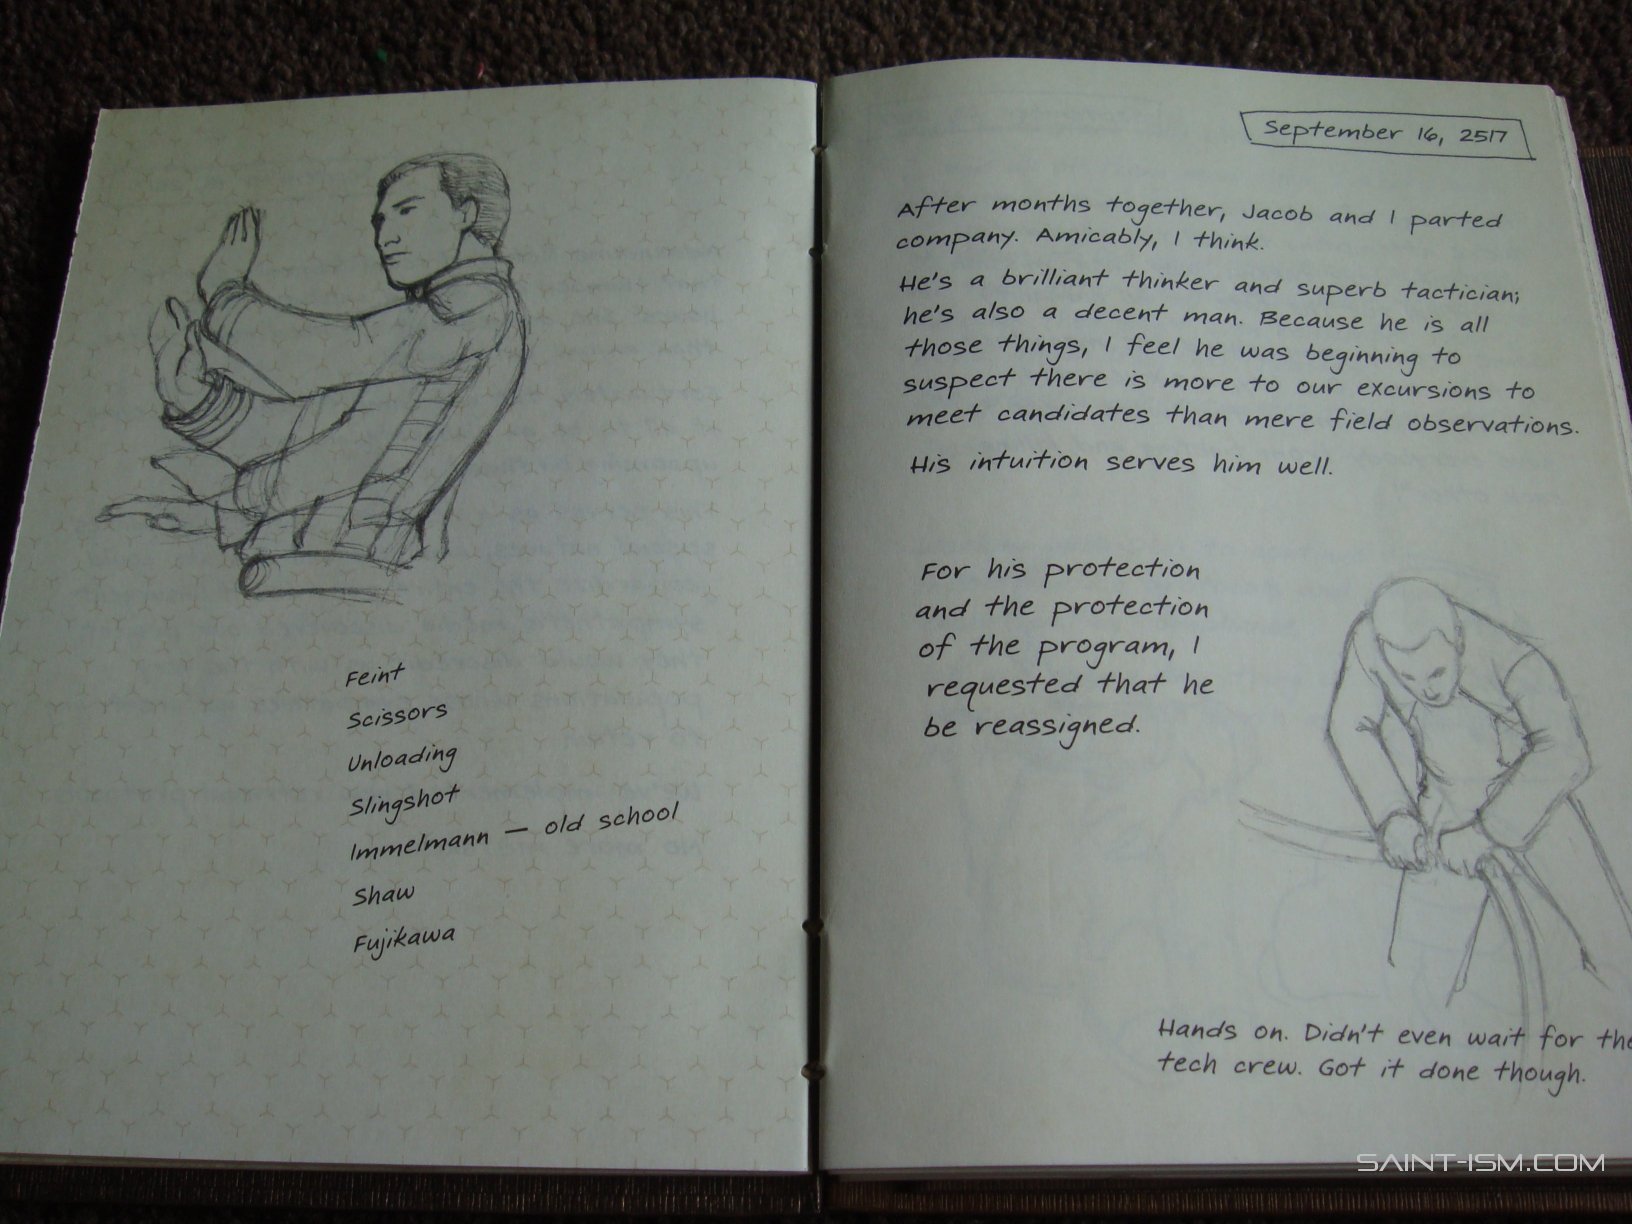 Feint
Scissors
Unloading
Slingshot
Immelmann — old school
Shaw
Fujikawa
September 16, 2517
After months together, Jacob and I parted
company. Amicably, I think.
He's a brilliant thinker and superb tactician;
he's also a decent man. Because he is all
those things, I feel he was beginning to
suspect there is more to our excursions to
meet candidates than mere field observations.
His intuition serves him well.
For his protection
and the protection
of the program, I
requested that he
be reassigned.
Hands on. Didn't even wait for the
tech crew. Got it done though.
SAINT-ISM.COM